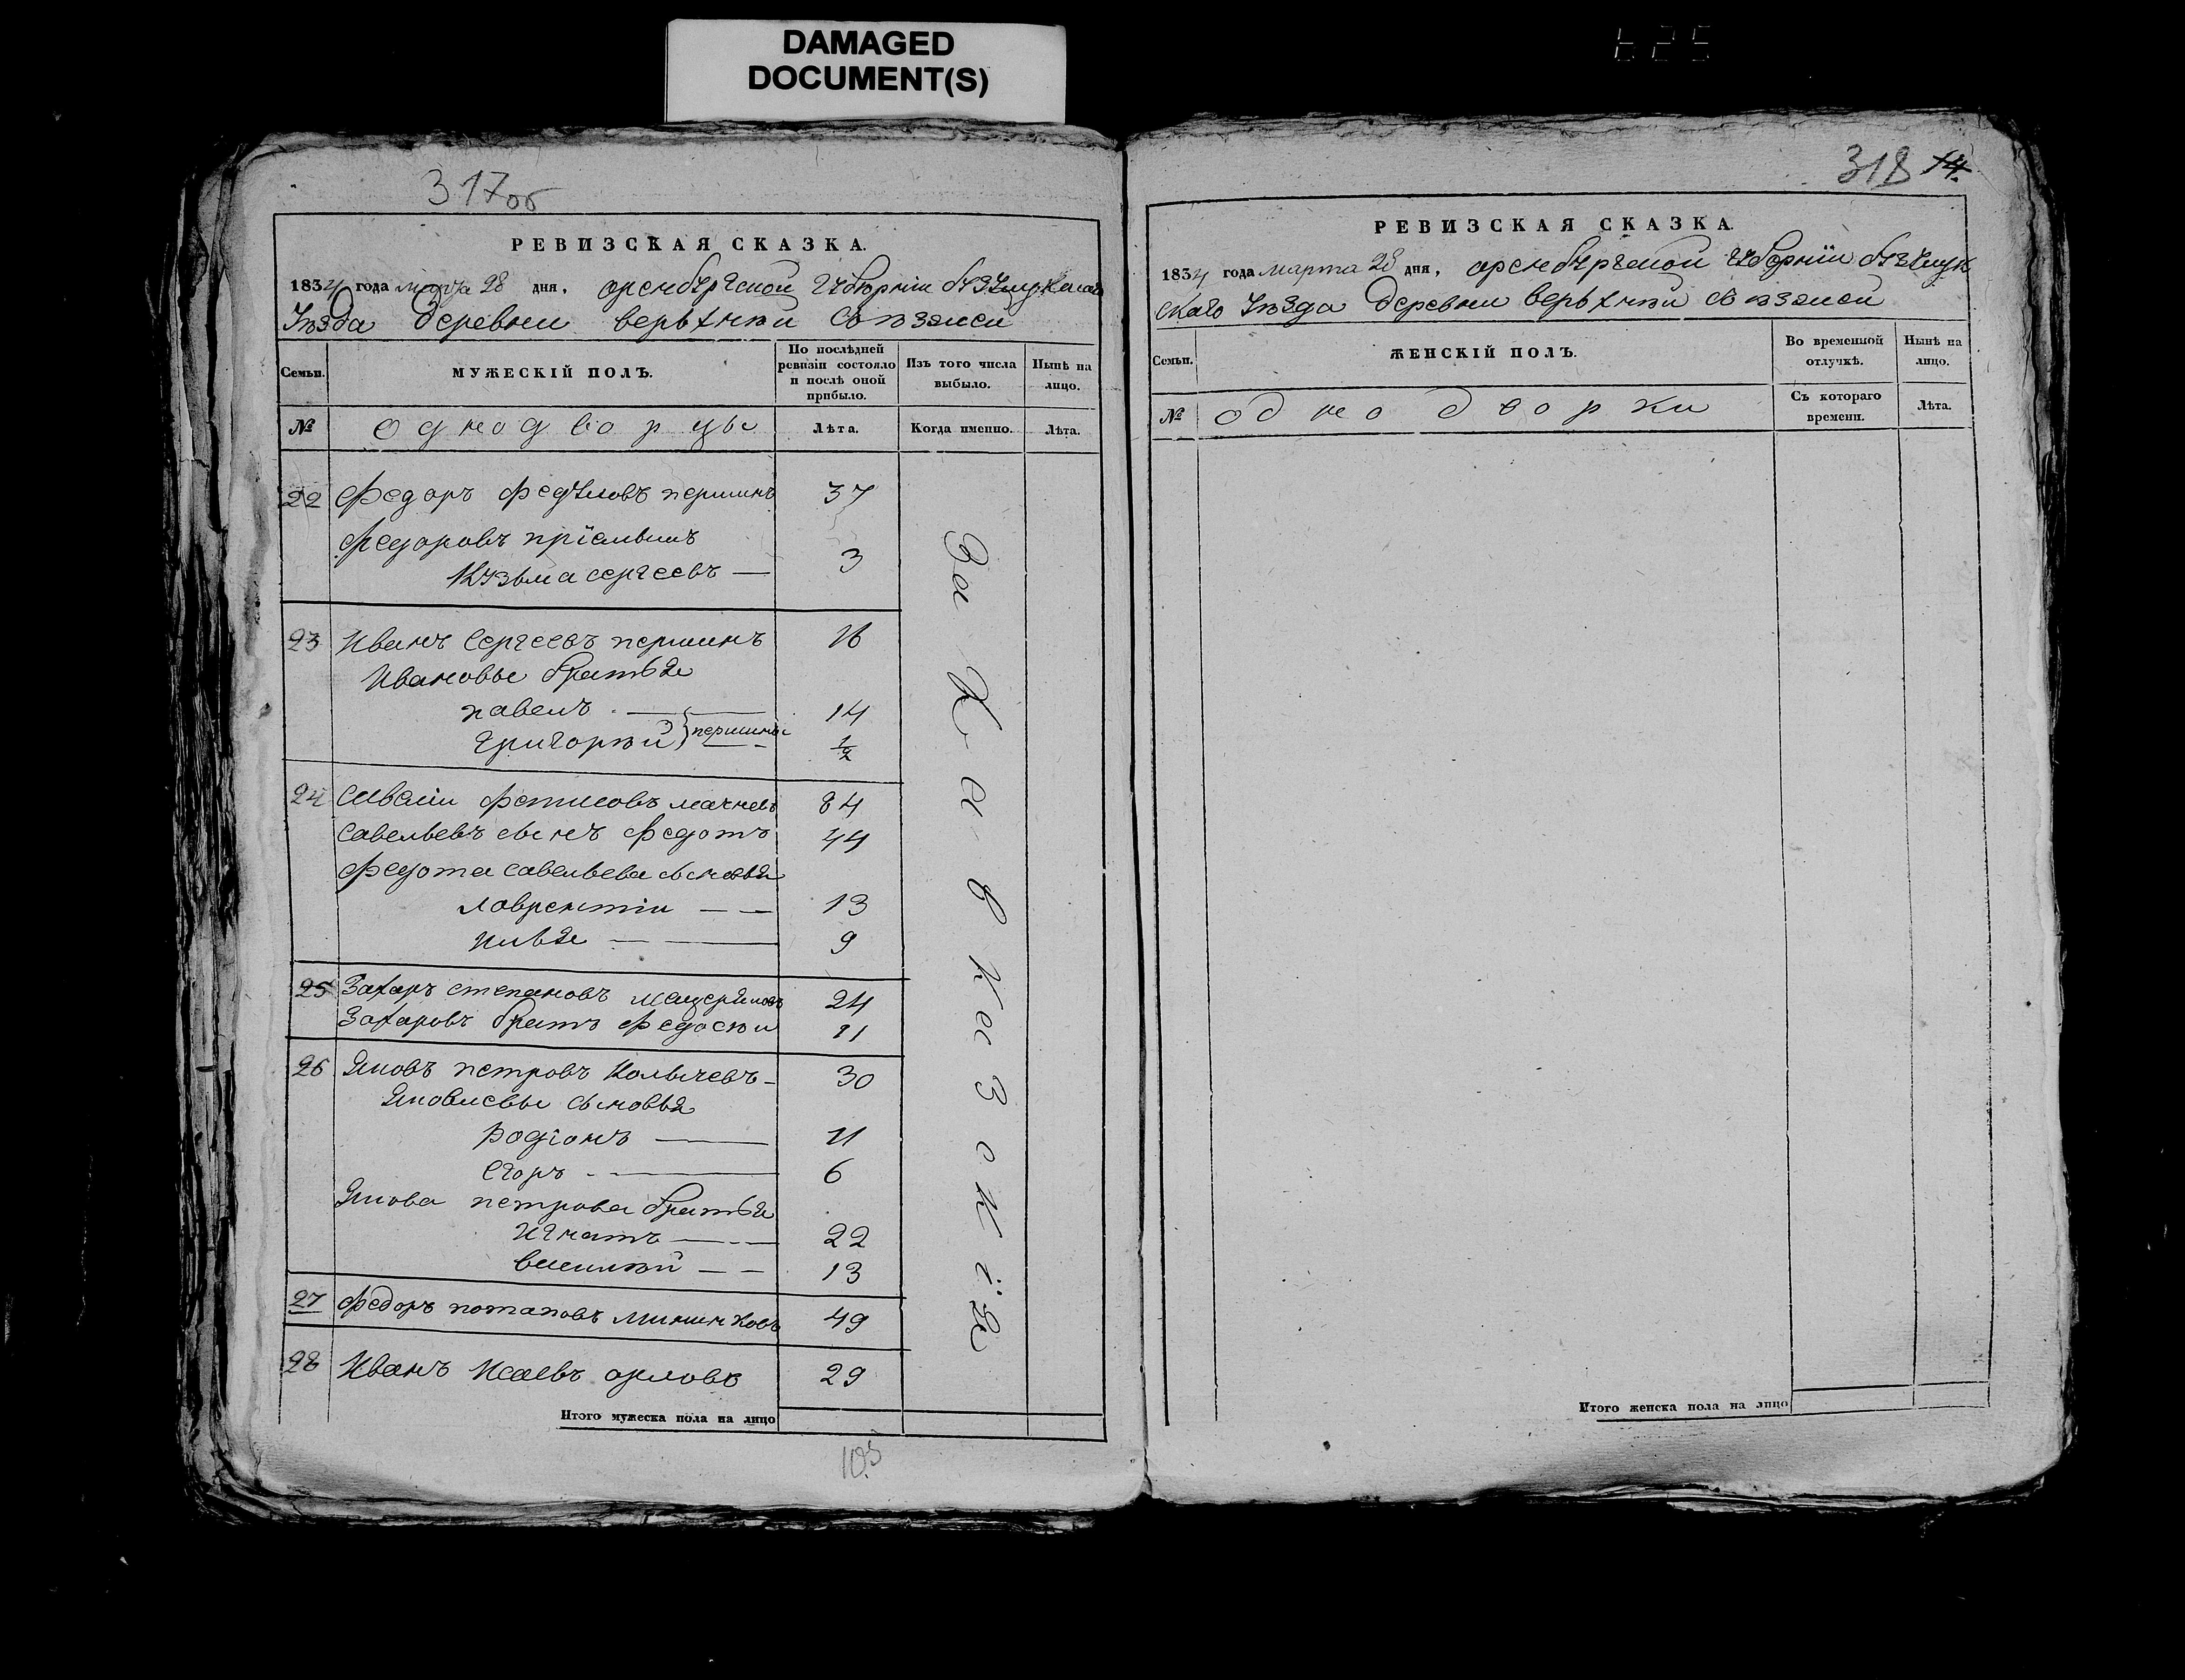 DAMAGED
DOCUMENT(S)
625
317об
РЕВИЗСКАЯ СКАЗКА.
1834 года марта 28 дня, оренбургской губернии бузулукскаго
уѣзда деревни верхнѣй съѣзжей
Семьи.
МУЖЕСКІЙ ПОЛЪ.
По послѣдней ревизіи состояло и послѣ оной прибыло.
Изъ того числа выбыло.
Нынѣ на лицо.
№
однодворцы
Лѣта.
Когда именно.
Лѣта.
22 Федоръ Федуловъ першинъ 37
Федоровъ пріемышъ
Кузьма сергеевъ — 3
23 Иванъ Сергеевъ першинъ 16
Ивановы братья
павелъ — 14
григорѣй } першины ½
24 Фетисовъ 84
Савельевъ сынъ Федотъ 44
Федота савельева сыновья
Лаврентіи — 13
илья — 9
25 Захаръ степановъ 24
Захаровъ братъ Федосѣи 11
26 Яковъ петровъ Колычевъ 30
Яковлевы сыновья
Родіонъ — 11
Егоръ — 6
Якова петрова братья
Игнатъ — 22
василѣй — 13
27 Федоръ потаповъ мининковъ 49
28 Иванъ Исаевъ орловъ 29
За Кавказокія
Итого мужеска пола на лицо
103
318 14.
РЕВИЗСКАЯ СКАЗКА.
1834 года марта 28 дня, оренбургской губерніи бузулук
скаго уѣзда деревни верхнѣй съѣзжей
Семьи.
ЖЕНСКІЙ ПОЛЪ.
Во временной отлучкѣ.
Нынѣ на лицо.
№
однодворки
Съ котораго времени.
Лѣта.
Итого женска пола на лицо